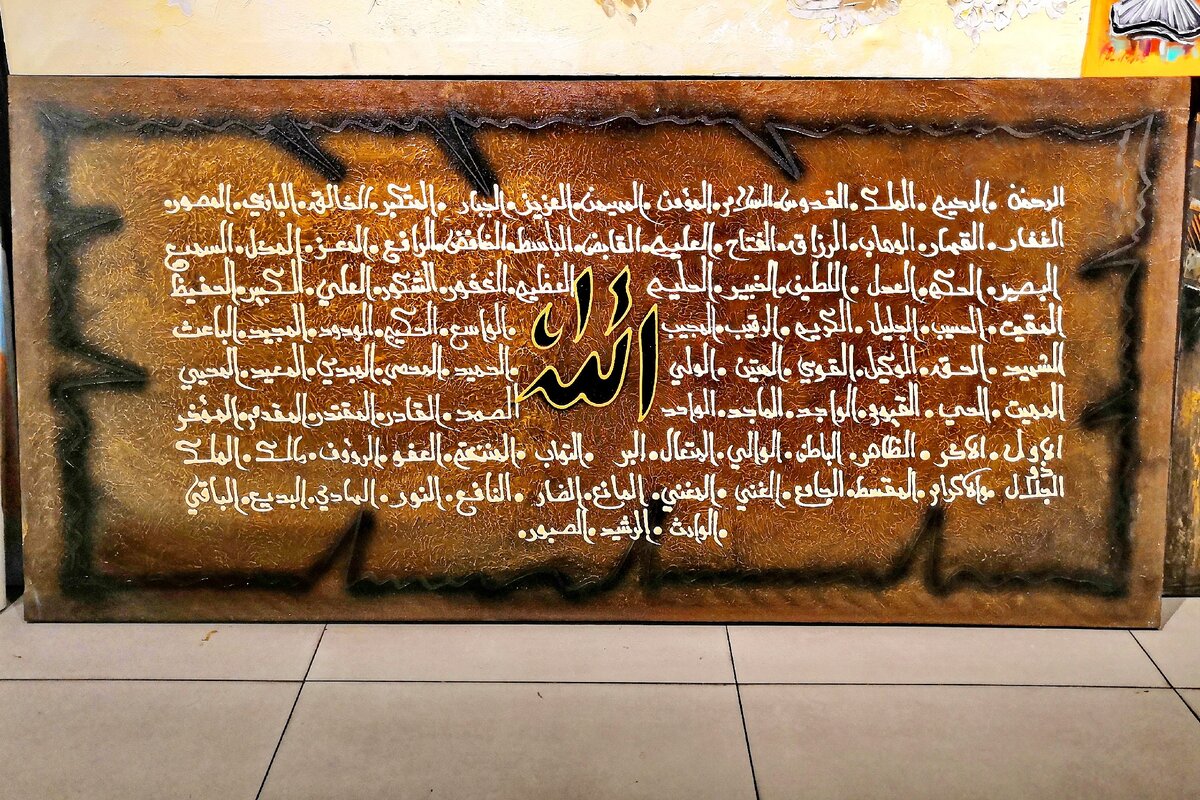 الرحمن . الرحيم . الملك . القدوس . السلام . المؤمن . المهيمن . العزيز . الجبار . المتكبر . الخالق . الباري . المصور .
الغفار . القهار . الوهاب . الرزاق . الفتاح . العليم . القابض . الباسط . الخافض . الرافع . المعز . المذل . السميع
البصير . الحكم . العدل . اللطيف . الخبير . الحليم . العظيم . الغفور . الشكور . العلي . الكبير . الحفيظ
المقيت . الحسيب . الجليل . الكريم . الرقيب . المجيب . الواسع . الحكيم . الودود . المجيد . الباعث
الله
الشهيد . الحق . الوكيل . القوي . المتين . الولي . الحميد . المحصي . المبدي . المعيد . المحيي
المميت . الحي . القيوم . الواجد . الماجد . الواحد . الصمد . القادر . المقتدر . المقدم . المؤخر
الاول . الآخر . الظاهر . الباطن . الوالي . المتعال . البر . التواب . المنتقم . العفو . الرؤوف . مالك . الملك
ذو الجلال والاكرام . المقسط . الجامع . الغني . المغني . المانع . الضار . النافع . النور . الهادي . البديع . الباقي
. الوارث . الرشيد . الصبور .